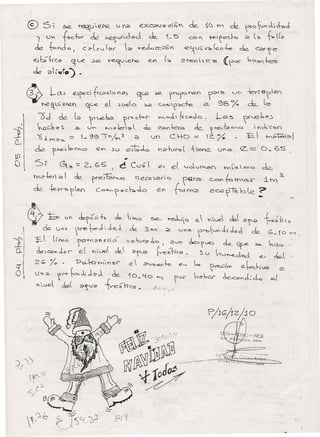 © Si se requiere una excavación de 10 m de profundidad
y un factor de seguridad de 1.5 con respecto a la falla
de fondo, calcular la reducción equivalente de carga
estática que se requiere en la arenisca (por bombeo
de alivio).
3) Las especificaciones que se proponen para un terraplen
requieren que el suelo se compacte a 98% de la
γd de la prueba proctor modificado. Las pruebas
hechas a un material de cantera de prestamo indican
γd max = 1.98 Tn/m³ a un CHO = 12%. El material
de prestamo en su estado natural tiene una e = 0.65
Si Gs = 2.65, ¿Cuál es el volumen mínimo de
material de prestamo necesario para conformar 1m³
de terraplen compactado en forma aceptable?
05 Ptos/
4) En un depósito de limo se redujo el nivel del agua freático
de una profundidad de 3m a una profundidad de 6.10 m.
El limo permaneció saturado, aun despues de que se hizo
descender el nivel del agua freática. Su humedad es del
26%. Determinar el aumento en la presión efectiva a
una profundidad de 10.40 m por haber descendido el
nivel del agua freática.
04 Ptos/
P/16/12/10
FELIZ
NAVIDAD
A Todos